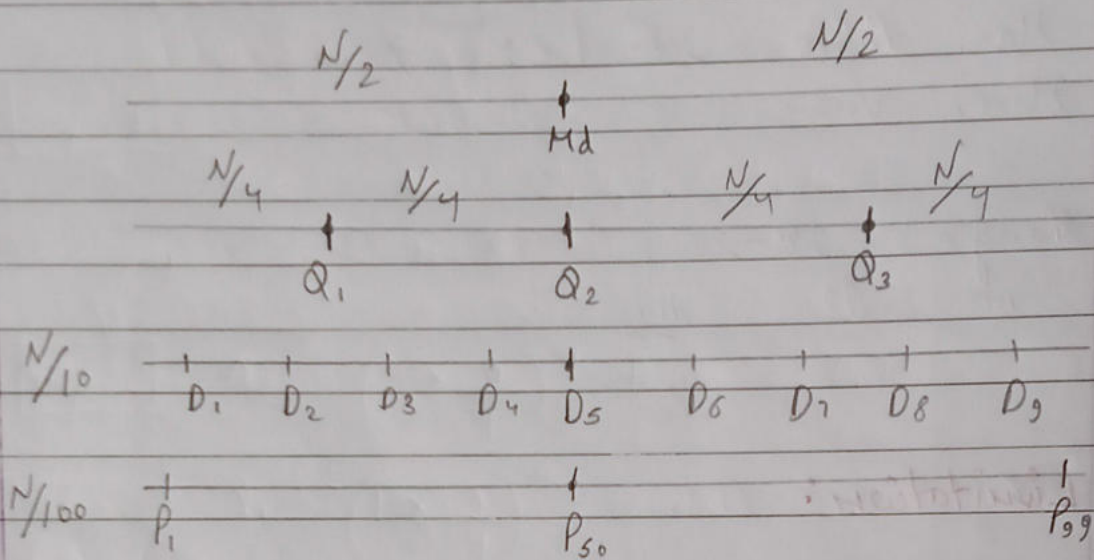 N/2 N/2
Md
N/4 N/4 N/4 N/4
Q1 Q2 Q3
N/10
D1 D2 D3 D4 D5 D6 D7 D8 D9
N/100
P1 P50 P99